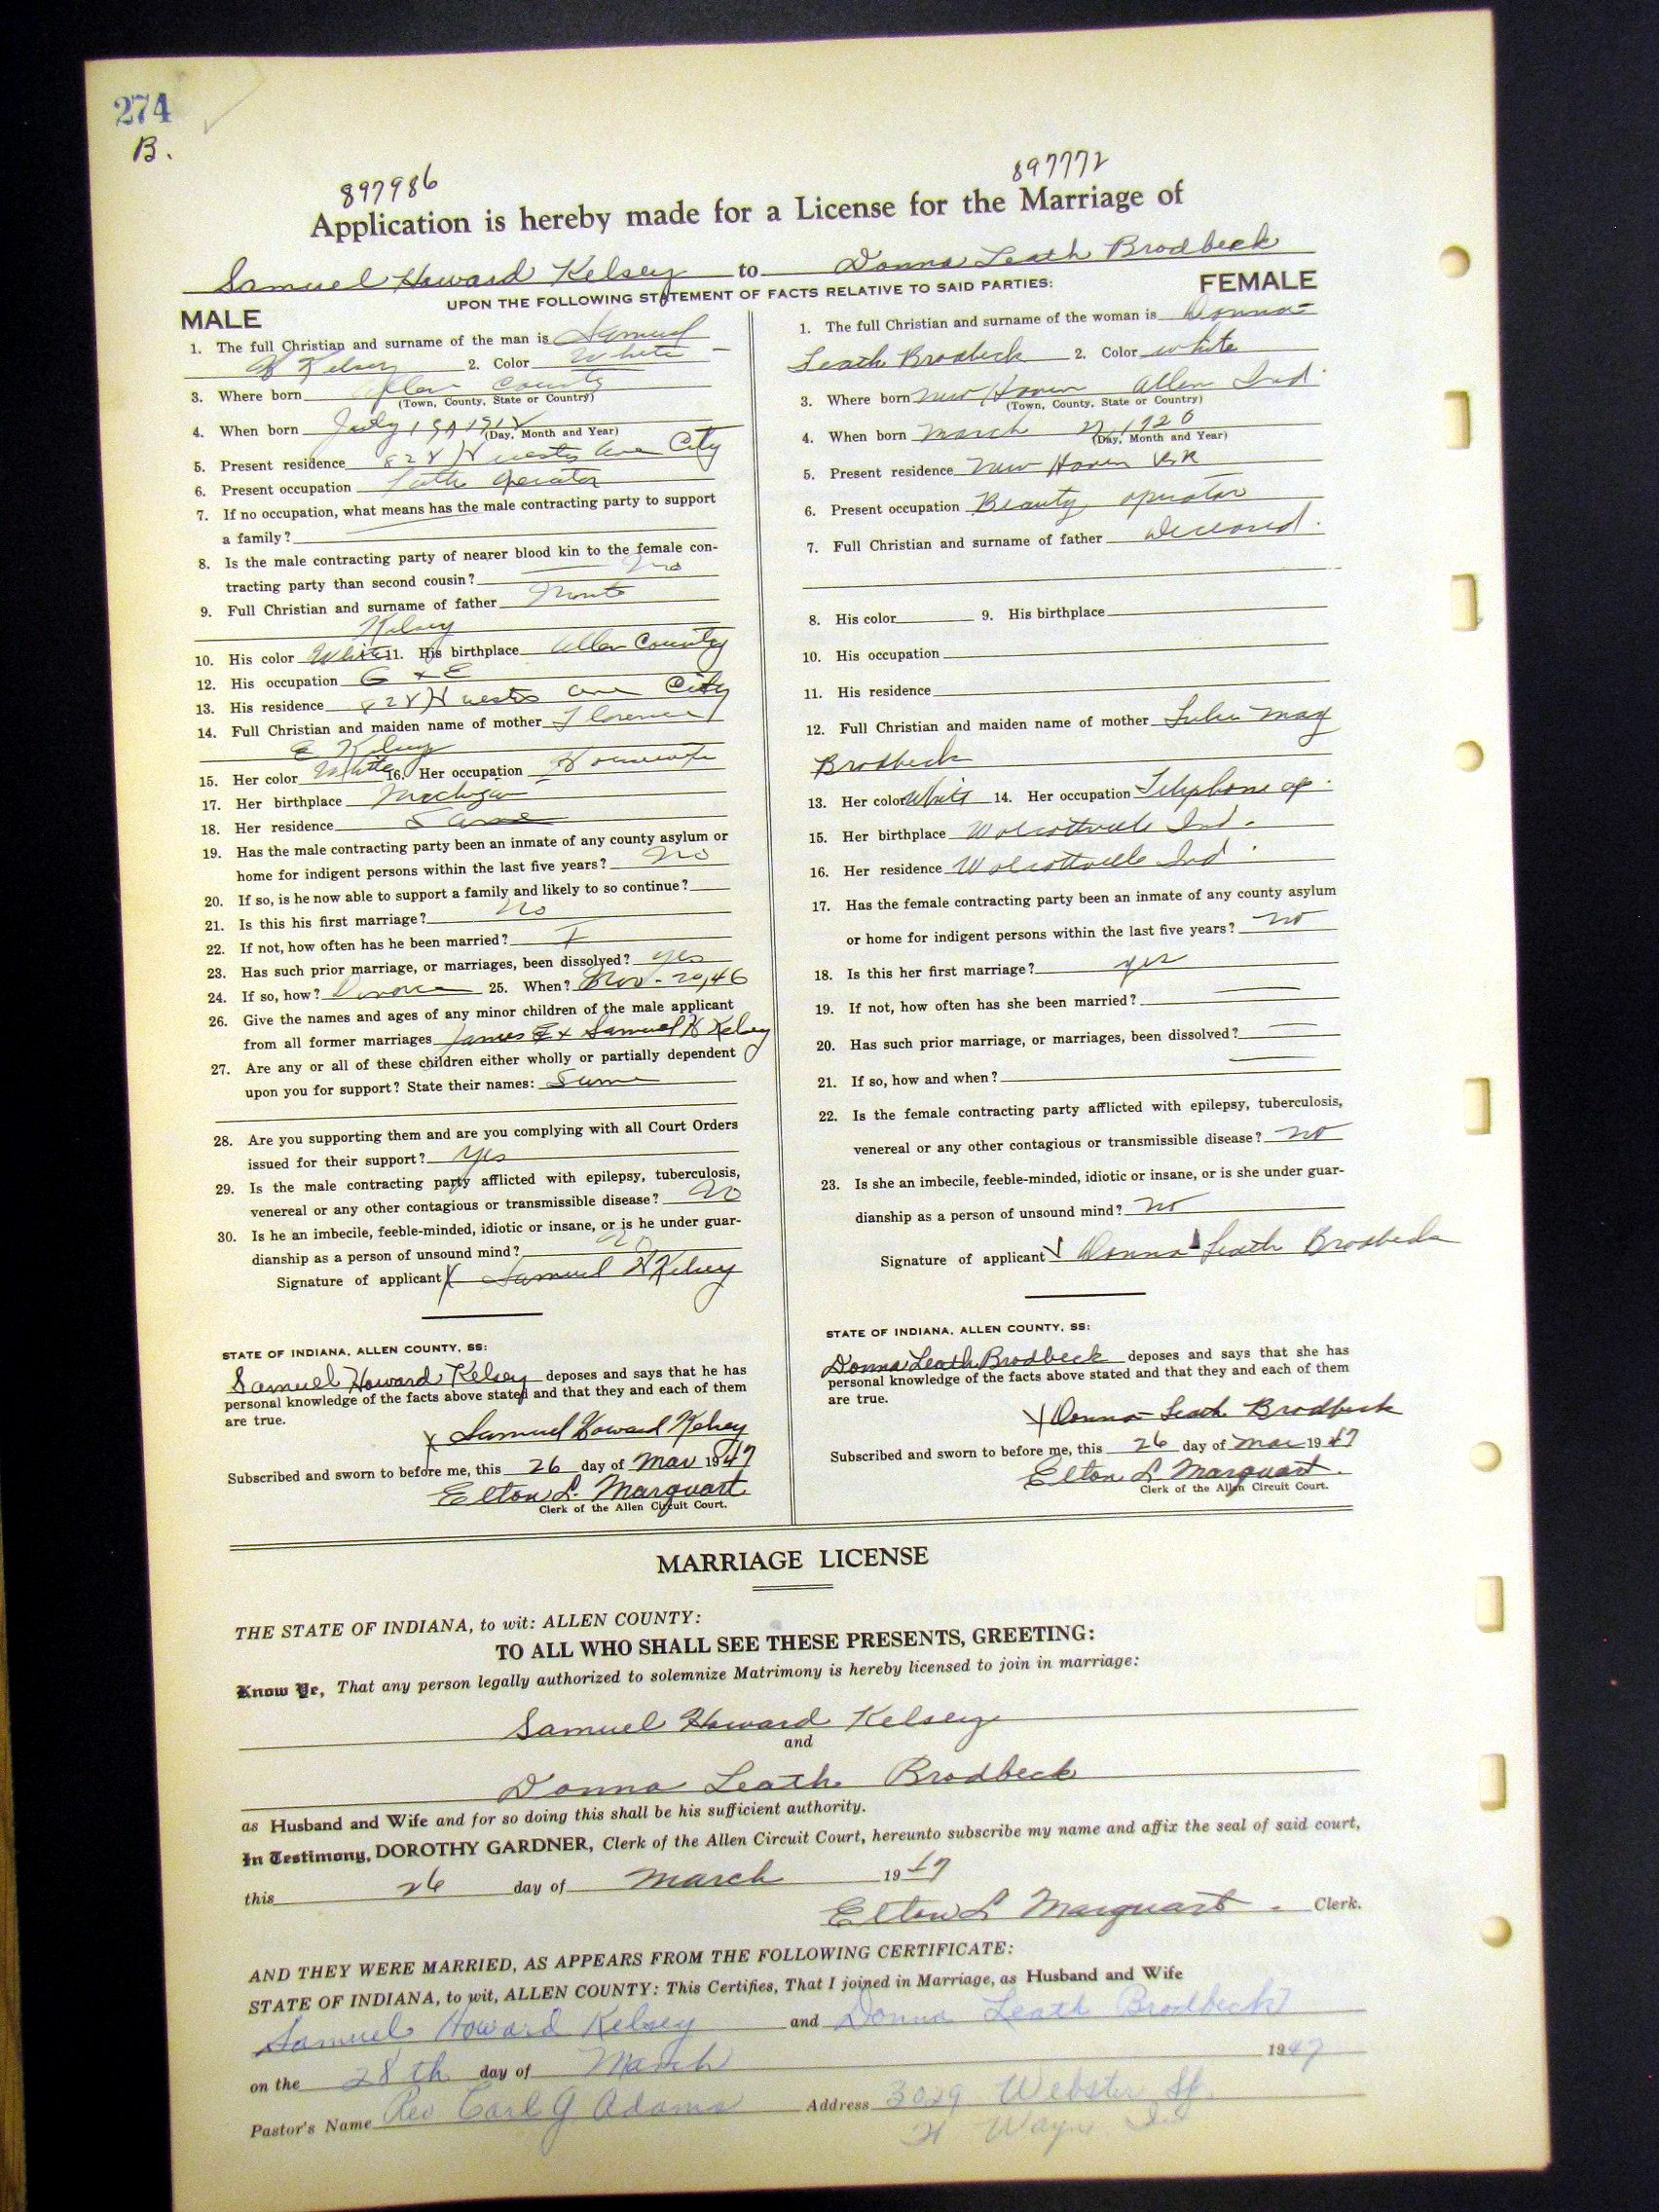 274
B.
897986
897772
Application is hereby made for a License for the Marriage of
Samuel Howard Kelsey to Donna Leath Brodbeck
UPON THE FOLLOWING STATEMENT OF FACTS RELATIVE TO SAID PARTIES:
MALE
1. The full Christian and surname of the man is Samuel
H Kelsey 2. Color White
3. Where born Allen County
(Town, County, State or Country)
4. When born July 19, 1912
(Day, Month and Year)
5. Present residence 828 Ave City
6. Present occupation Lathe Operator
7. If no occupation, what means has the male contracting party to support
a family?
8. Is the male contracting party of nearer blood kin to the female con-
tracting party than second cousin? no
9. Full Christian and surname of father
Kelsey
10. His color White 11. His birthplace Allen County
12. His occupation G & E
13. His residence 828 Ave City
14. Full Christian and maiden name of mother Florence
E Kelsey
15. Her color White 16. Her occupation Housewife
17. Her birthplace Michigan
18. Her residence Same
19. Has the male contracting party been an inmate of any county asylum or
home for indigent persons within the last five years? no
20. If so, is he now able to support a family and likely to so continue?
21. Is this his first marriage? no
22. If not, how often has he been married? I
23. Has such prior marriage, or marriages, been dissolved? yes
24. If so, how? Divorce 25. When? Nov - 20, 46
26. Give the names and ages of any minor children of the male applicant
from all former marriages James E + Samuel H Kelsey
27. Are any or all of these children either wholly or partially dependent
upon you for support? State their names: Same
28. Are you supporting them and are you complying with all Court Orders
issued for their support? yes
29. Is the male contracting party afflicted with epilepsy, tuberculosis,
venereal or any other contagious or transmissible disease? no
30. Is he an imbecile, feeble-minded, idiotic or insane, or is he under guar-
dianship as a person of unsound mind? no
Signature of applicant X Samuel H Kelsey
STATE OF INDIANA, ALLEN COUNTY, SS:
Samuel Howard Kelsey deposes and says that he has
personal knowledge of the facts above stated and that they and each of them
are true.
X Samuel Howard Kelsey
Subscribed and sworn to before me, this 26 day of Mar 1947
Elton L. Marquart
Clerk of the Allen Circuit Court.
FEMALE
1. The full Christian and surname of the woman is Donna
Leath Brodbeck 2. Color white
3. Where born New Haven Allen Ind.
(Town, County, State or Country)
4. When born March 27, 1920
(Day, Month and Year)
5. Present residence New Haven
6. Present occupation Beauty operator
7. Full Christian and surname of father deceased.
8. His color 9. His birthplace
10. His occupation
11. His residence
12. Full Christian and maiden name of mother Lulu May
Brodbeck
13. Her color White 14. Her occupation Telephone op.
15. Her birthplace Wolcottville Ind.
16. Her residence Wolcottville Ind.
17. Has the female contracting party been an inmate of any county asylum
or home for indigent persons within the last five years? no
18. Is this her first marriage? yes
19. If not, how often has she been married?
20. Has such prior marriage, or marriages, been dissolved?
21. If so, how and when?
22. Is the female contracting party afflicted with epilepsy, tuberculosis,
venereal or any other contagious or transmissible disease? no
23. Is she an imbecile, feeble-minded, idiotic or insane, or is she under guar-
dianship as a person of unsound mind? no
Signature of applicant X Donna Leath Brodbeck
STATE OF INDIANA, ALLEN COUNTY, SS:
Donna Leath Brodbeck deposes and says that she has
personal knowledge of the facts above stated and that they and each of them
are true.
X Donna Leath Brodbeck
Subscribed and sworn to before me, this 26 day of Mar 1947
Elton L. Marquart.
Clerk of the Allen Circuit Court.
MARRIAGE LICENSE
THE STATE OF INDIANA, to wit: ALLEN COUNTY:
TO ALL WHO SHALL SEE THESE PRESENTS, GREETING:
Know Ye, That any person legally authorized to solemnize Matrimony is hereby licensed to join in marriage:
Samuel Howard Kelsey
and
Donna Leath Brodbeck
as Husband and Wife and for so doing this shall be his sufficient authority.
In Testimony, DOROTHY GARDNER, Clerk of the Allen Circuit Court, hereunto subscribe my name and affix the seal of said court,
this 26 day of March 1947
Elton L Marquart. Clerk.
AND THEY WERE MARRIED, AS APPEARS FROM THE FOLLOWING CERTIFICATE:
STATE OF INDIANA, to wit, ALLEN COUNTY: This Certifies, That I joined in Marriage, as Husband and Wife
Samuel Howard Kelsey and Donna Leath Brodbeck
on the 28th day of March 1947
Pastor's Name Rev Carl G Adams Address 3029 Webster St.
Ft Wayne Ind